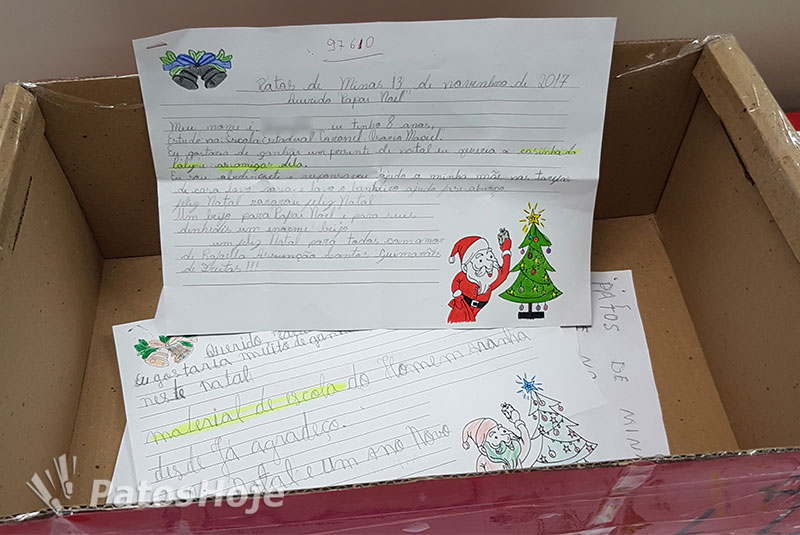 97610
Patos de Minas 13 de novembro de 2017
Querido Papai Noel
Meu nome é eu tenho 8 anos,
Estudo na Escola Estadual Coronel Osorio Maciel.
Eu gostaria de ganhar um presente de natal eu queria a casinha da
as amigas dela.
Eu sou ajudo a minha mãe nas tarefas
de casa lavo lavo o banheiro
feliz Natal feliz Natal
Um beijo para Papai Noel e para seus
um enorme beijo
um feliz Natal para todos com amor
de Rafaella Assunção Santos Guimarães
de Freitas!!!
Querido
Eu gostaria muito de ganha
neste natal
material de escola do Homem aranha
desde Já agradeço.
Natal e um ano Novo
PATOS DE MIN
PatosHoje